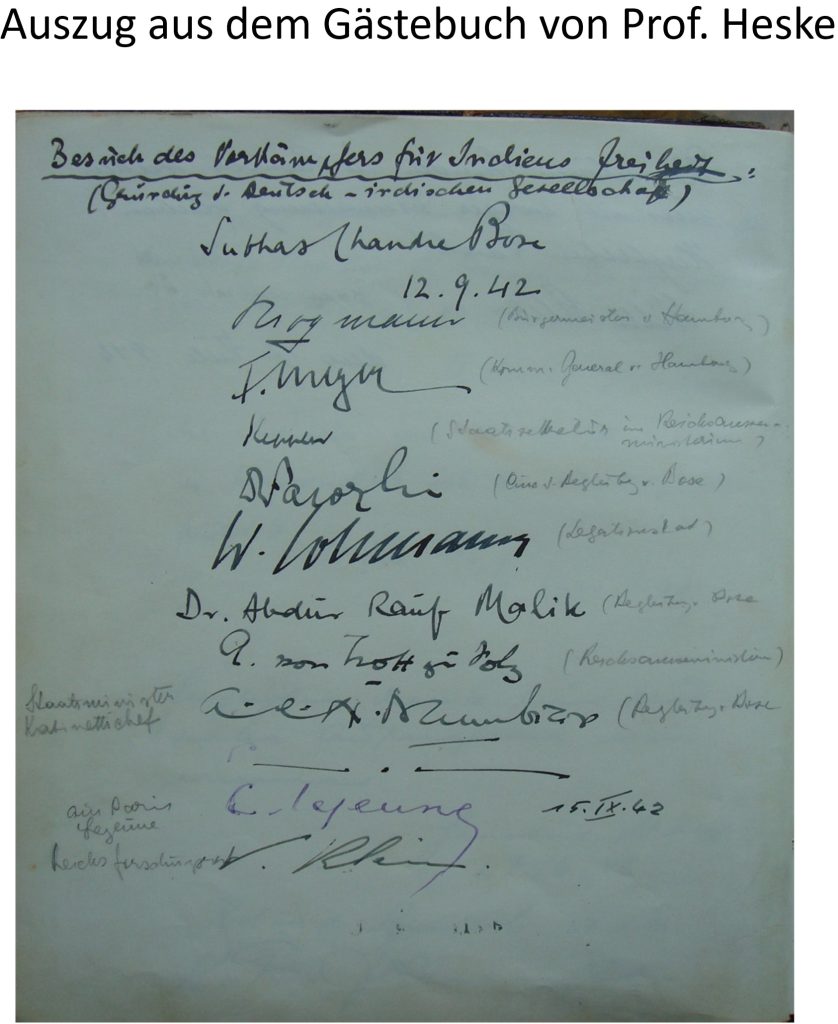 Auszug aus dem Gästebuch von Prof. Heske
Besuch des Vorkämpfers für Indiens Freiheit:
(Gründung d. Deutsch-indischen Gesellschaft)
Subhas Chandra Bose
12.9.42
Krogmann (Bürgermeister v. Hamburg)
(Komm. General v. Hamburg)
Keppler (Staatssekretär im Reichsaussen-
ministerium)
(Begleitg. v. Bose)
W. (Legationsrat)
Dr. Abdur Rauf Malik (Begleitg. v. Bose
A. von Trott zu Solz (Reichsaussenministerium)
Staatsminister
Kabinettschef
(Begleitg. v. Bose
C. Lejeune 15.IX.42
aus Paris
Lejeune